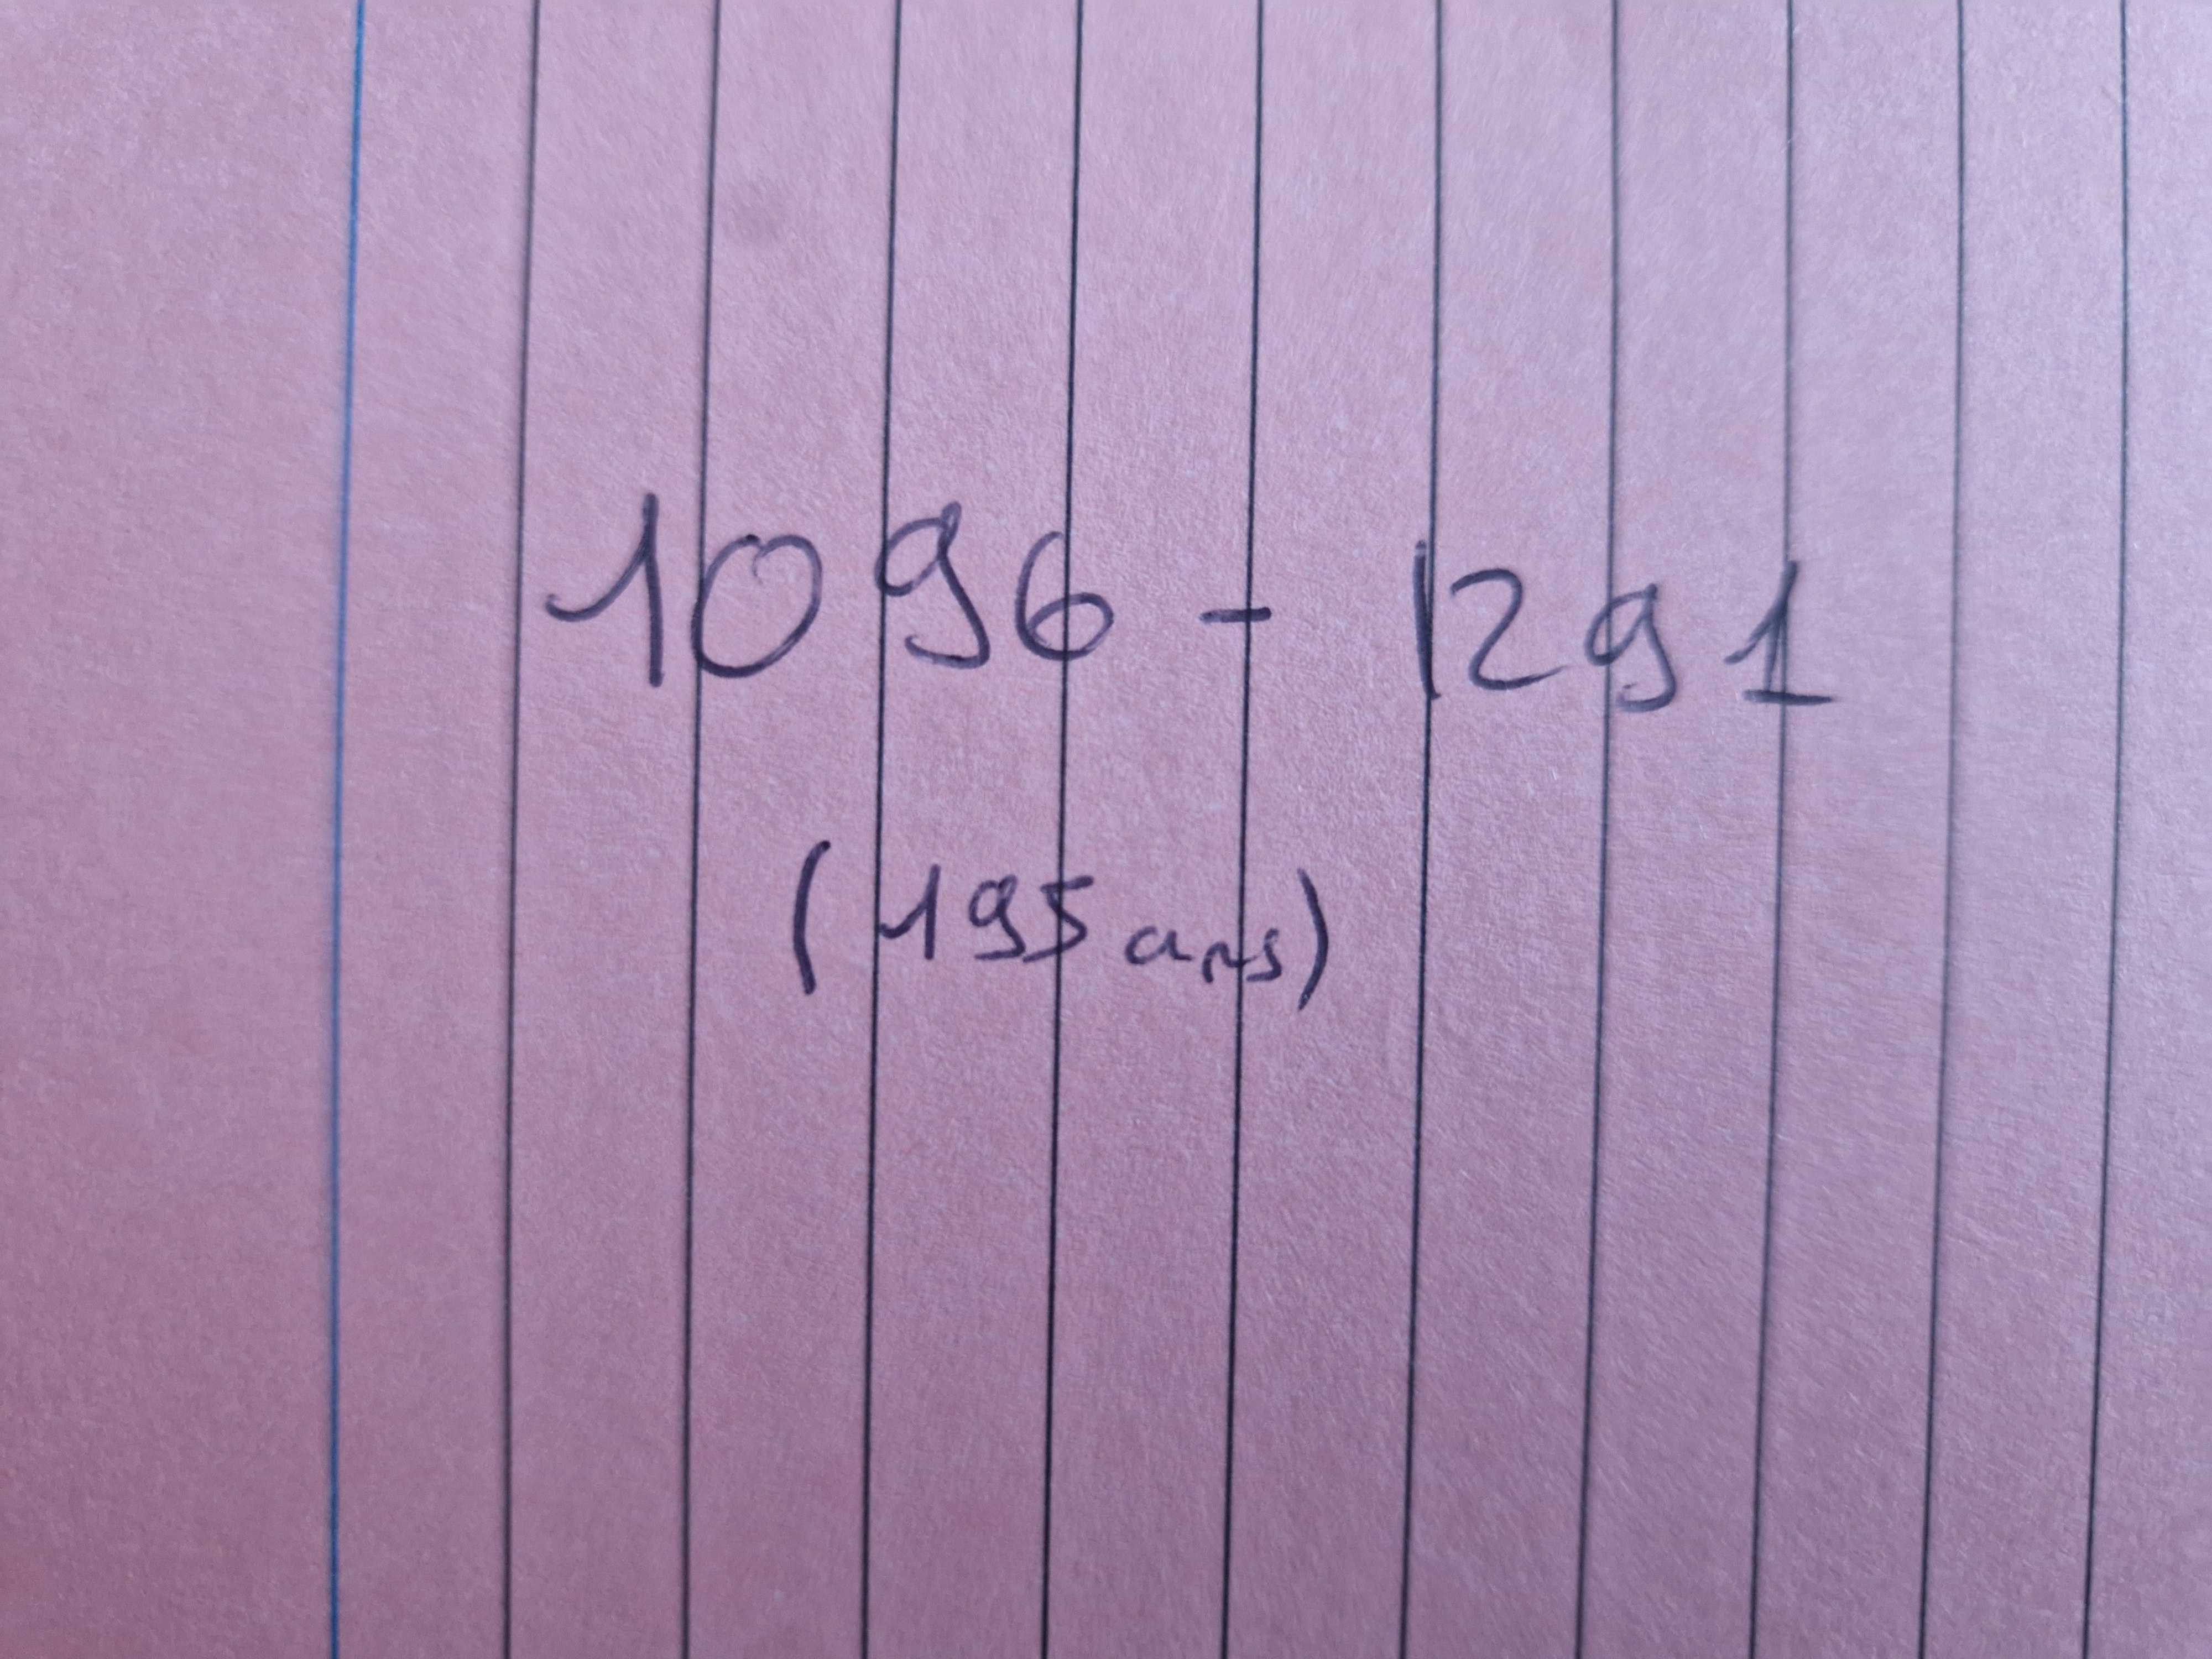 1096 - 1291
(195 ans)